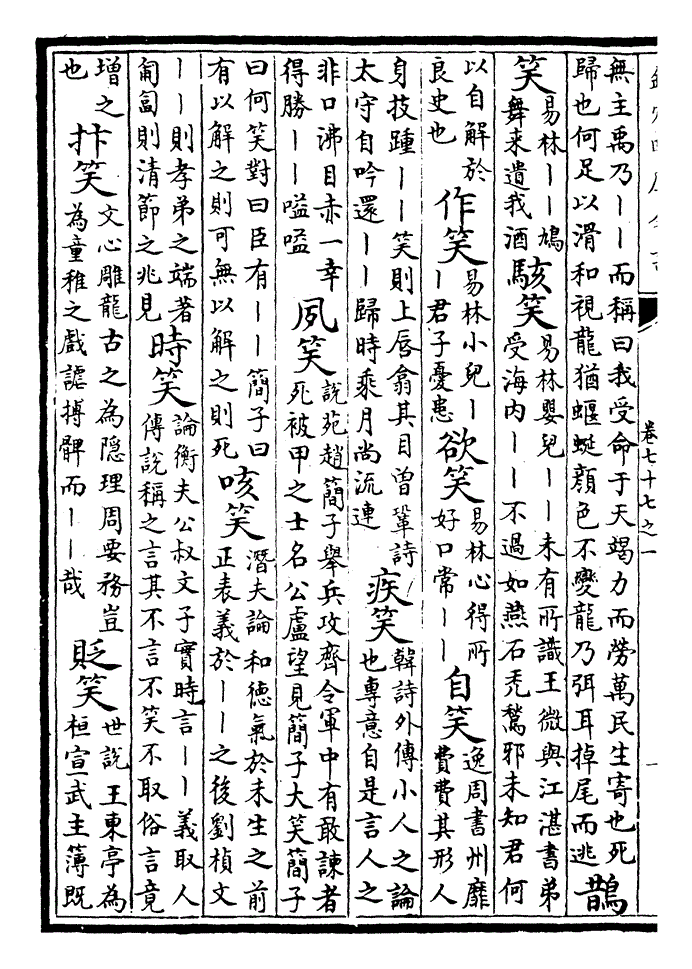 卷七十七之一
一
無主禹乃——而稱曰我受命于天竭力而勞萬民生寄也死
歸也何足以滑和視龍猶蝘蜓顔色不變龍乃弭耳掉尾而逃
鵲
笑
易林——鳩
舞来遺我酒
駭笑
易林嬰兒——未有所識王微與江湛書弟
受海内——不過如燕石秃鶖邪未知君何
以自解於
良史也
作笑
易林小兒—
—君子憂患
欲笑
易林心得所
好口常——
自笑
逸周書州靡
費費其形人
身技踵——笑則上唇翕其目曽鞏詩
太守自吟還——歸時乘月尚流連
疾笑
韓詩外傳小人之論
也專意自是言人之
非口沸目赤一幸
得勝——嗌嗌
夙笑
說苑趙簡子舉兵攻齊令軍中有敢諫者
死被甲之士名公盧望見簡子大笑簡子
曰何笑對曰臣有——簡子曰
有以解之則可無以解之則死
咳笑
潛夫論和德氣於未生之前
正表義於——之後劉楨文
——則孝弟之端著
匍匐則清節之兆見
時笑
論衡夫公叔文子實時言——義取人
傳說稱之言其不言不笑不取俗言竟
增之
也
抃笑
文心雕龍古之為隠理周要務豈
為童稚之戲謔搏髀而——哉
貶笑
世說王東亭為
桓宣武主簿既